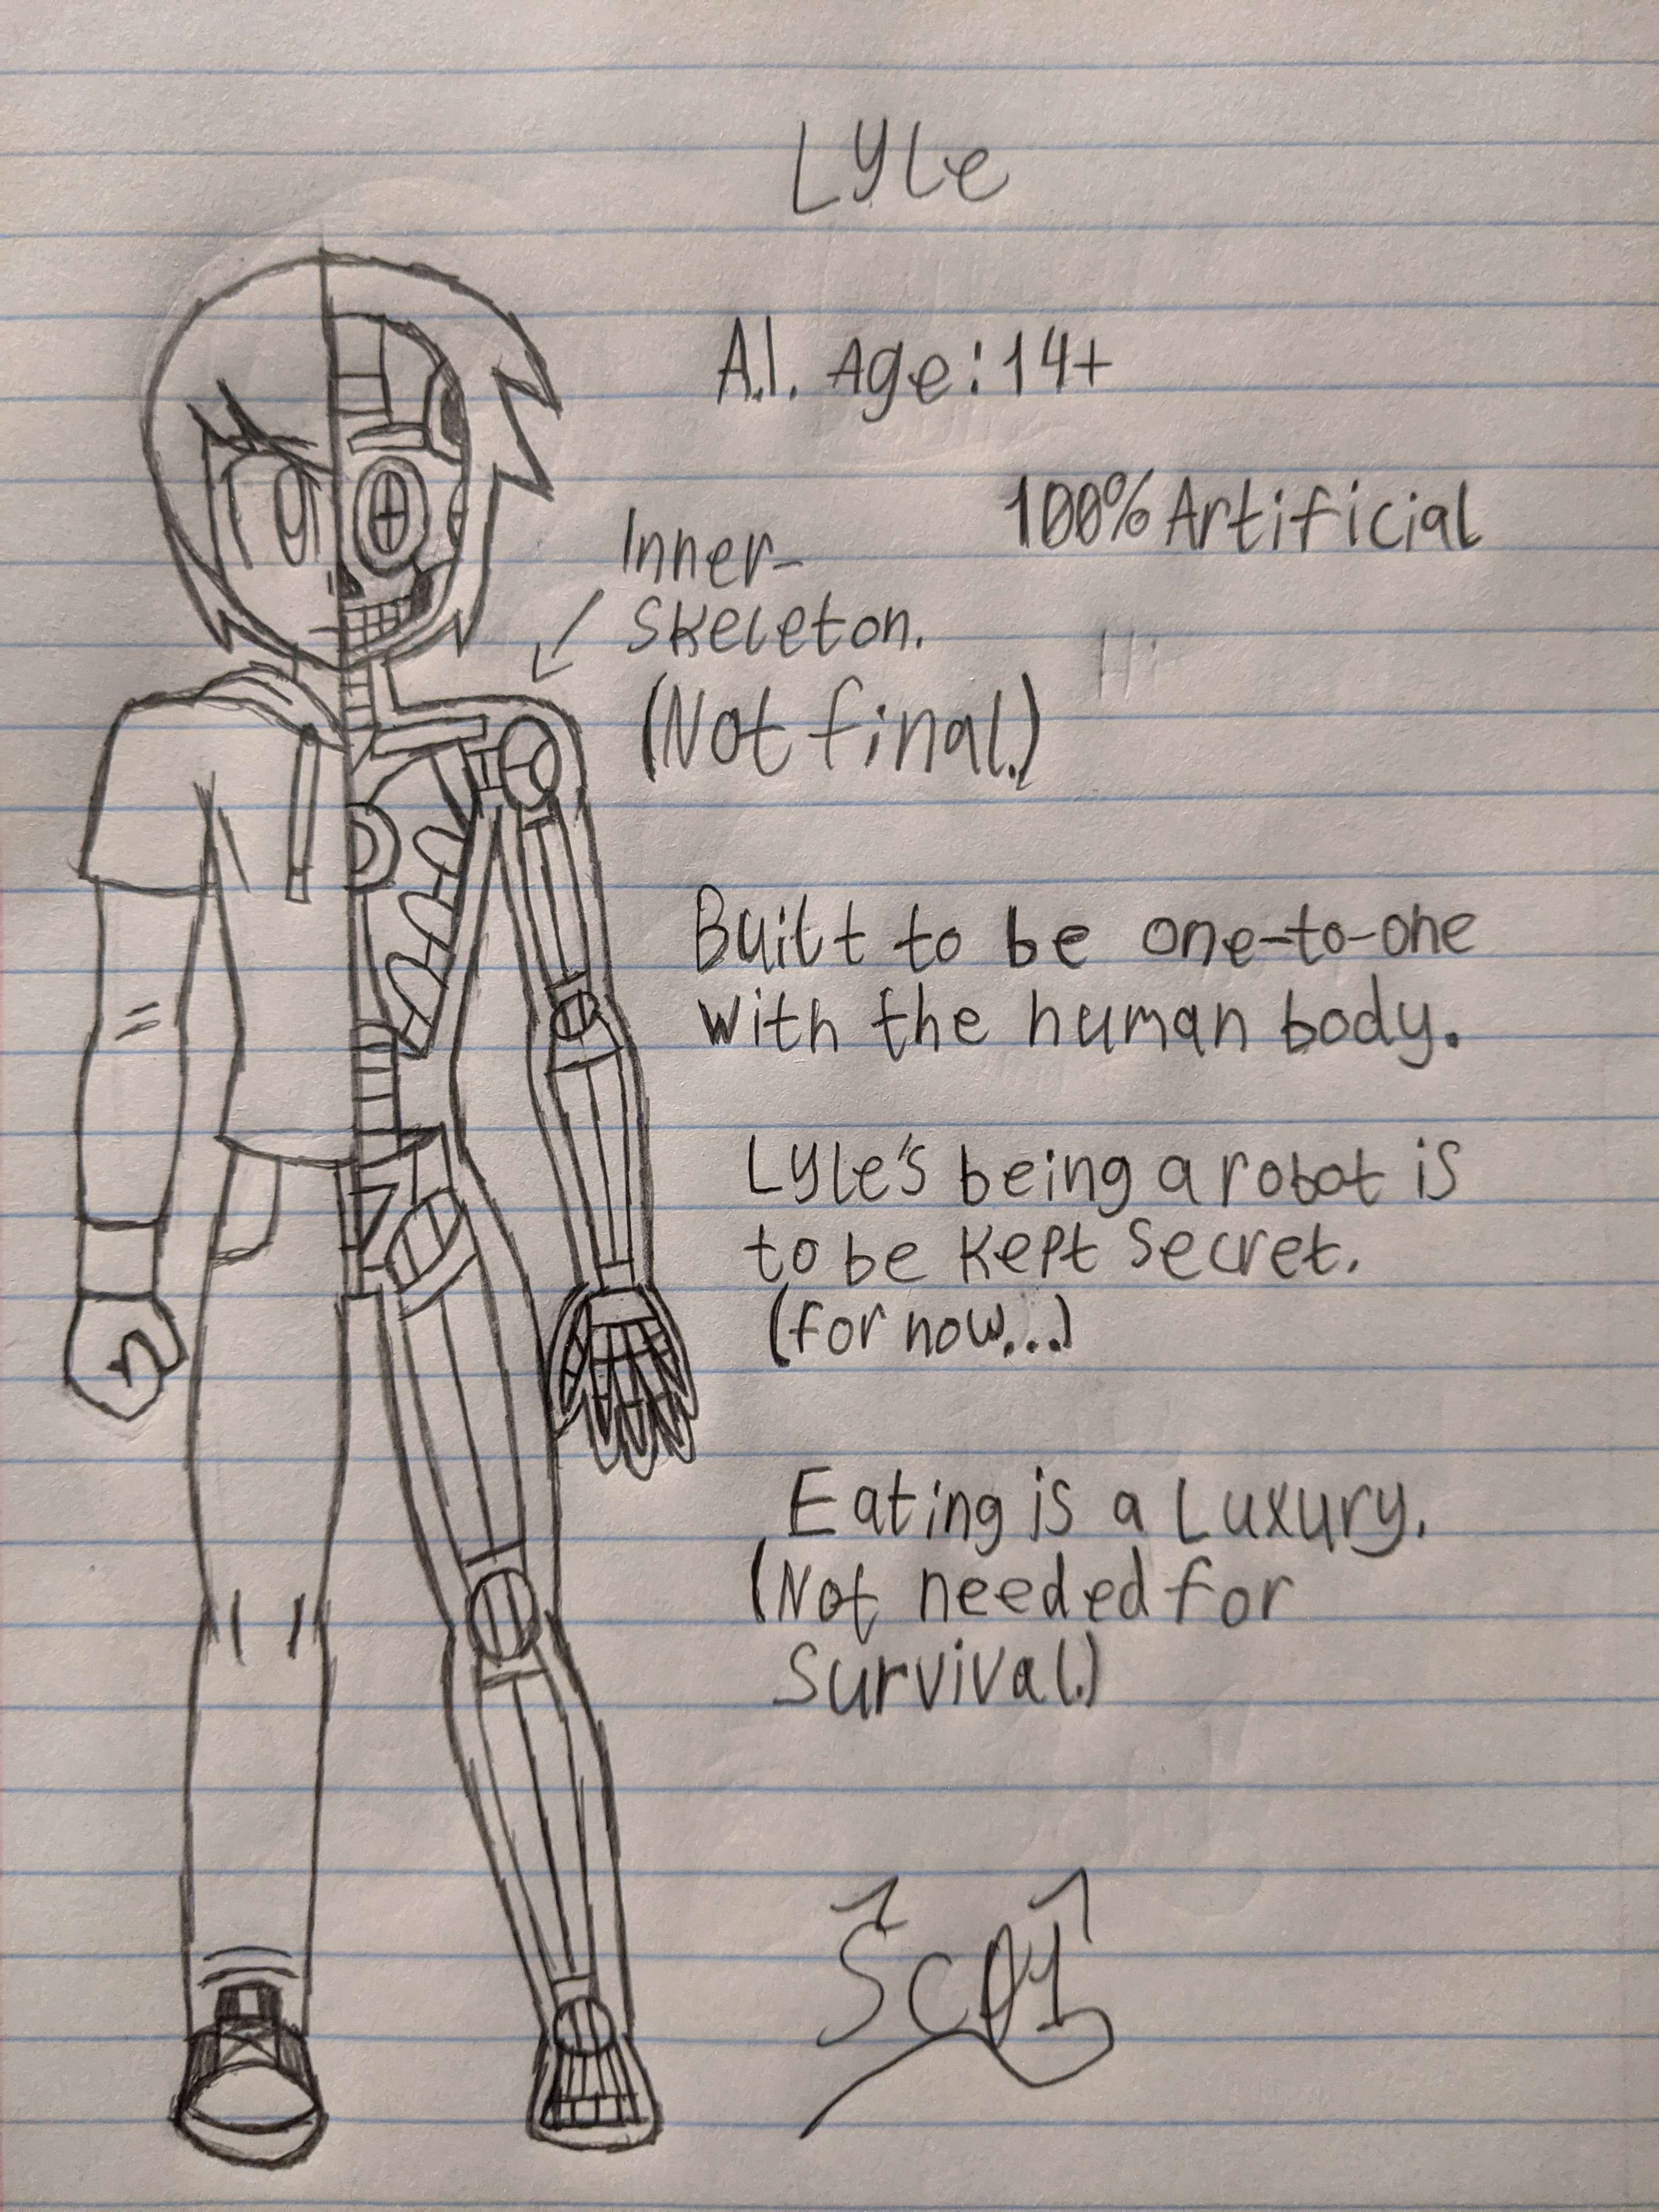 Lyle
A.I. Age: 14+
100% Artificial
Inner-
Skeleton.
(Not final.)
Hi
Built to be one-to-one
with the human body.
Lyle's being a robot is
to be kept secret.
(for now...)
Eating is a Luxury.
(Not needed for
survival.)